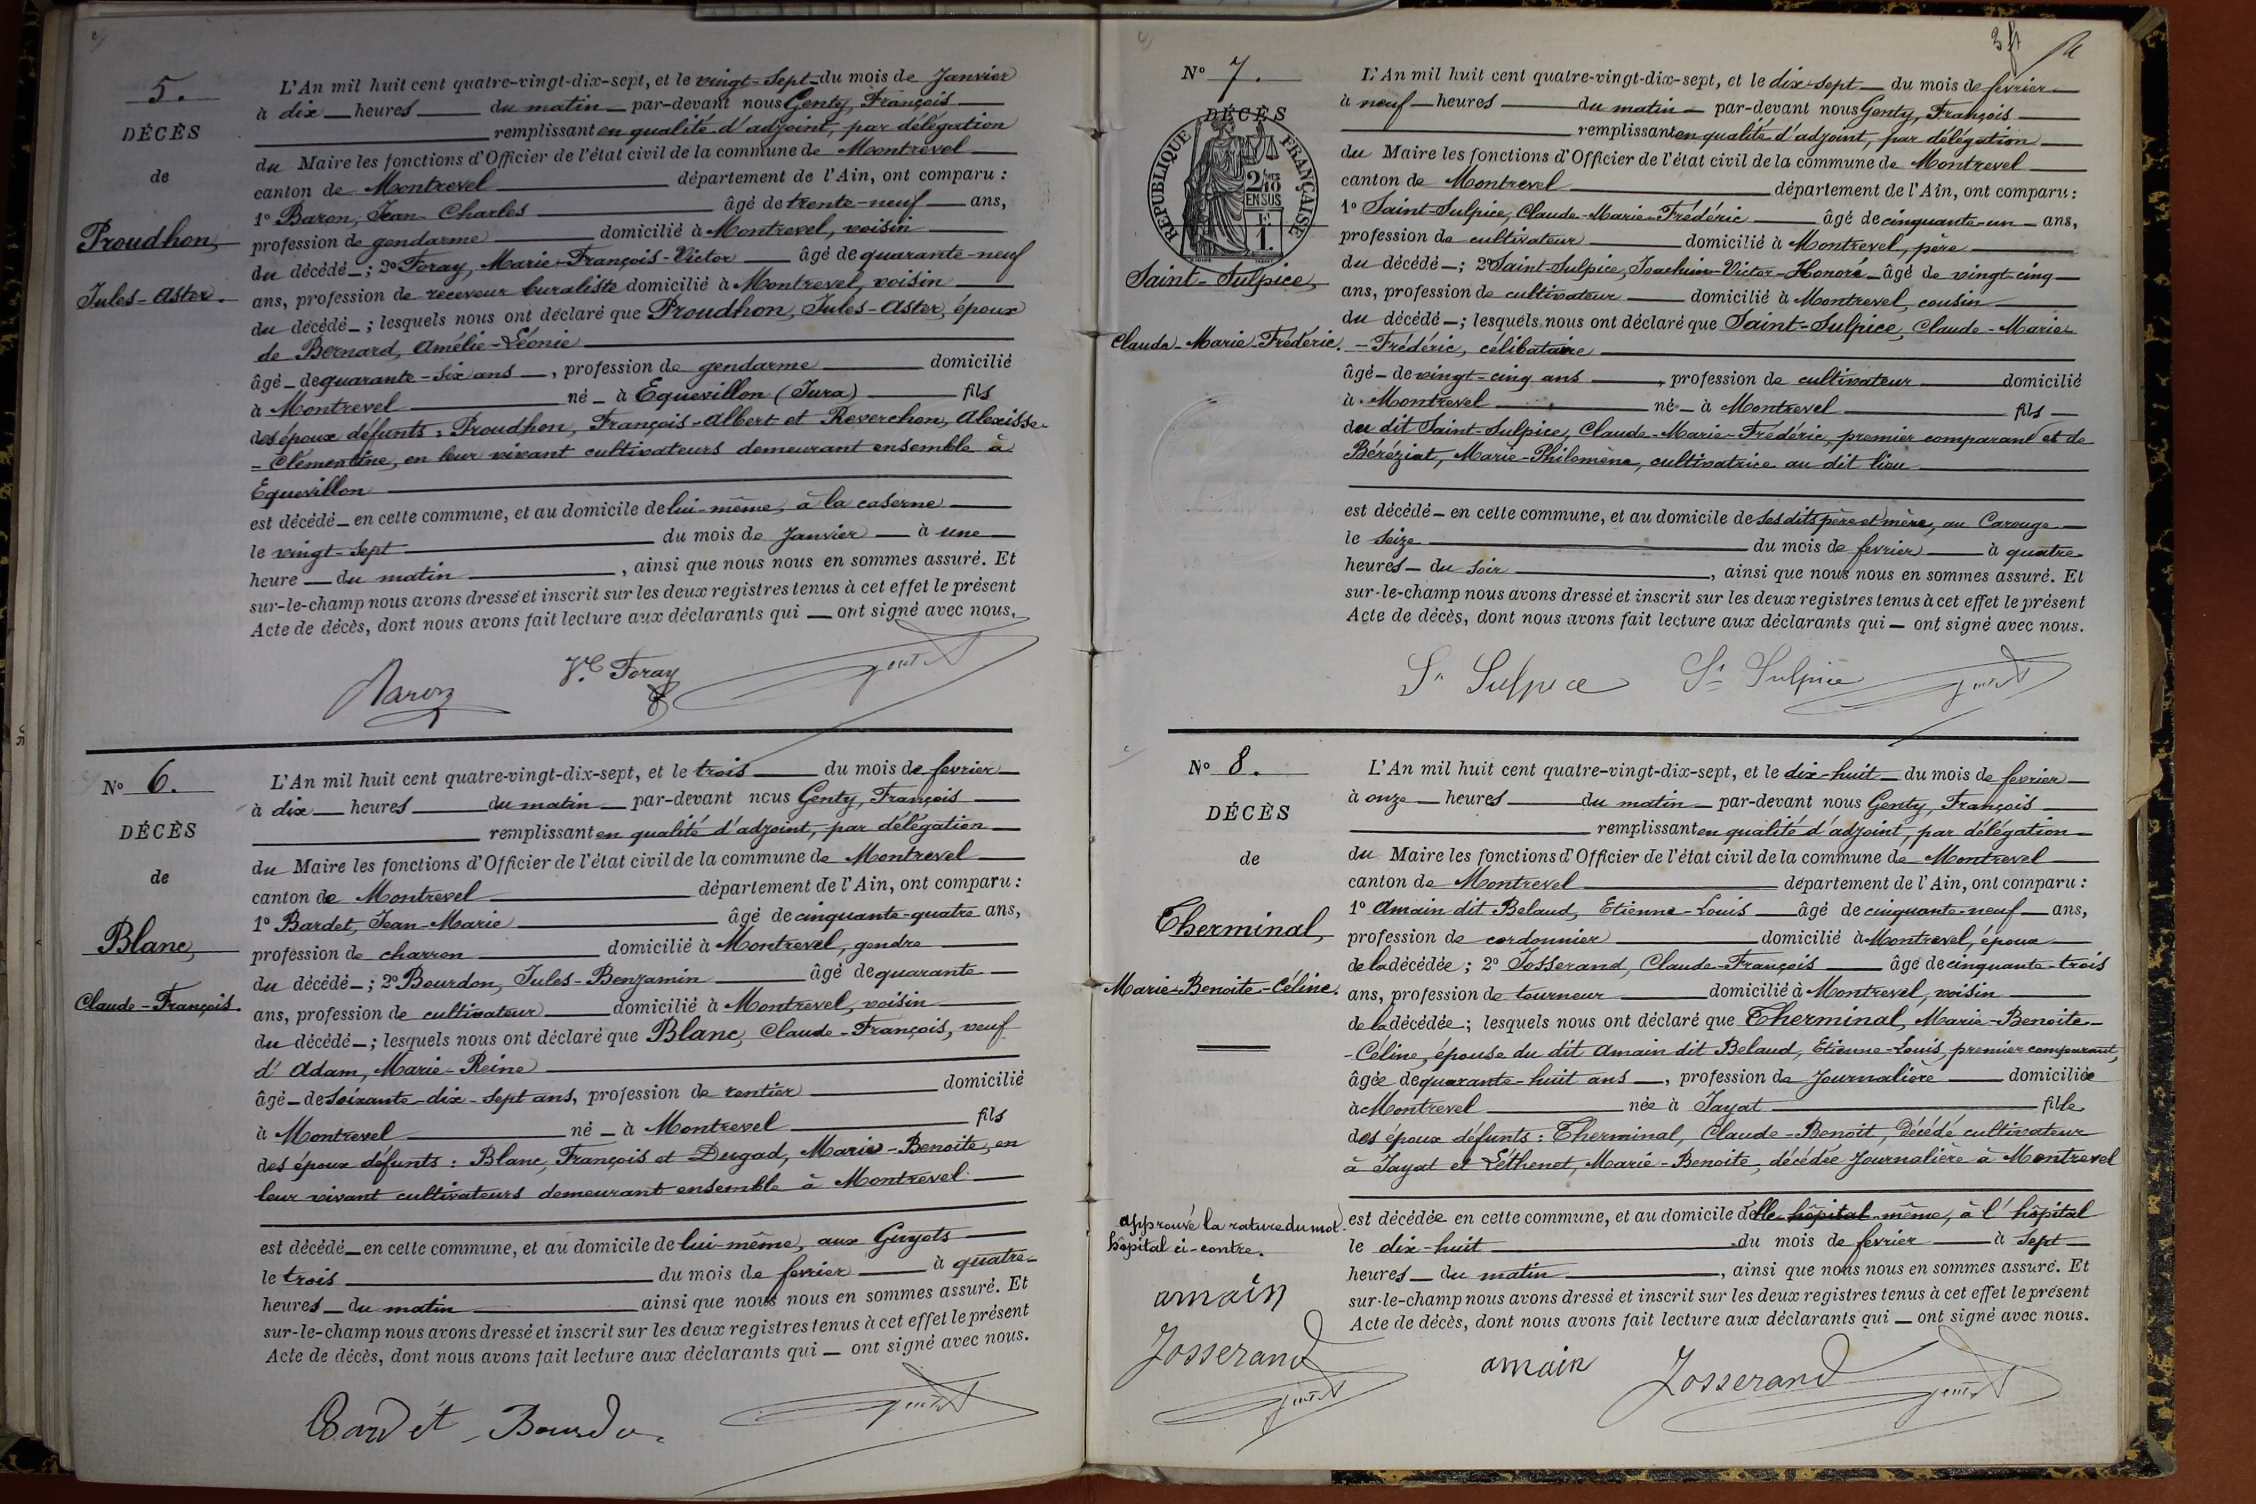 5.
DÉCÈS
de
Proudhon,
Jules-Aster.
L'An mil huit cent quatre-vingt-dix-sept, et le vingt-sept du mois de Janvier
à dix heures du matin par-devant nous Genty, François
remplissant en qualité d'adjoint, par délégation
du Maire les fonctions d'Officier de l'état civil de la commune de Montrevel
canton de Montrevel département de l'Ain, ont comparu :
1° Baron, Jean-Charles âgé de trente-neuf ans,
profession de gendarme domicilié à Montrevel, voisin
du décédé ; 2° Foray, Marie-François-Victor âgé de quarante-neuf
ans, profession de receveur buraliste domicilié à Montrevel, voisin
du décédé ; lesquels nous ont déclaré que Proudhon, Jules-Aster, époux
de Bernard, Amélie-Léonie
âgé de quarante-six ans, profession de gendarme domicilié
à Montrevel né à Equevillon (Jura) fils
des époux défunts : Proudhon, François-Albert et Reverchon, Alexisse-
-Clémentine, en leur vivant cultivateurs demeurant ensemble à
Equevillon
est décédé en cette commune, et au domicile de lui-même, à la caserne
le vingt-sept du mois de Janvier à une
heure du matin, ainsi que nous nous en sommes assuré. Et
sur-le-champ nous avons dressé et inscrit sur les deux registres tenus à cet effet le présent
Acte de décès, dont nous avons fait lecture aux déclarants qui ont signé avec nous.
Baron Vor Foray Genty
N° 6.
DÉCÈS
de
Blanc,
Claude-François.
L'An mil huit cent quatre-vingt-dix-sept, et le trois du mois de fevrier
à dix heures du matin par-devant nous Genty, François
remplissant en qualité d'adjoint, par délégation
du Maire les fonctions d'Officier de l'état civil de la commune de Montrevel
canton de Montrevel département de l'Ain, ont comparu :
1° Bardet, Jean-Marie âgé de cinquante-quatre ans,
profession de charron domicilié à Montrevel, gendre
du décédé ; 2° Bourdon, Jules-Benjamin âgé de quarante
ans, profession de cultivateur domicilié à Montrevel, voisin
du décédé ; lesquels nous ont déclaré que Blanc, Claude-François, veuf
d'Adam, Marie-Reine
âgé de soixante-dix-sept ans, profession de rentier domicilié
à Montrevel né à Montrevel fils
des époux défunts : Blanc, François et Dugad, Marie-Benoite, en
leur vivant cultivateurs demeurant ensemble à Montrevel
est décédé en cette commune, et au domicile de lui-même, aux Guyots
le trois du mois de fevrier à quatre
heures du matin ainsi que nous nous en sommes assuré. Et
sur-le-champ nous avons dressé et inscrit sur les deux registres tenus à cet effet le présent
Acte de décès, dont nous avons fait lecture aux déclarants qui ont signé avec nous.
Bardet Bourdon Genty
N° 7.
DÉCÈS
RÉPUBLIQUE FRANÇAISE
2/10 EN SUS
Saint-Sulpice,
Claude-Marie-Frédéric.
L'An mil huit cent quatre-vingt-dix-sept, et le dix-sept du mois de fevrier
à neuf heures du matin par-devant nous Genty, François
remplissant en qualité d'adjoint, par délégation
du Maire les fonctions d'Officier de l'état civil de la commune de Montrevel
canton de Montrevel département de l'Ain, ont comparu :
1° Saint-Sulpice, Claude-Marie-Frédéric âgé de cinquante-un ans,
profession de cultivateur domicilié à Montrevel, père
du décédé ; 2° Saint-Sulpice, Joachim-Victor-Honoré âgé de vingt-cinq
ans, profession de cultivateur domicilié à Montrevel, cousin
du décédé ; lesquels nous ont déclaré que Saint-Sulpice, Claude-Marie-
-Frédéric, célibataire
âgé de vingt-cinq ans, profession de cultivateur domicilié
à Montrevel né à Montrevel fils
du dit Saint-Sulpice, Claude-Marie-Frédéric, premier comparant et de
Béréziat, Marie-Philomène, cultivatrice au dit lieu
est décédé en cette commune, et au domicile de ses dits père et mère, au Carouge
le seize du mois de fevrier à quatre
heures du soir, ainsi que nous nous en sommes assuré. Et
sur-le-champ nous avons dressé et inscrit sur les deux registres tenus à cet effet le présent
Acte de décès, dont nous avons fait lecture aux déclarants qui ont signé avec nous.
St Sulpice St Sulpice Genty
N° 8.
DÉCÈS
de
Therminal,
Marie-Benoite-Céline.
L'An mil huit cent quatre-vingt-dix-sept, et le dix-huit du mois de fevrier
à onze heures du matin par-devant nous Genty, François
remplissant en qualité d'adjoint, par délégation
du Maire les fonctions d'Officier de l'état civil de la commune de Montrevel
canton de Montrevel département de l'Ain, ont comparu :
1° Amain dit Belaud, Etienne-Louis âgé de cinquante-neuf ans,
profession de cordonnier domicilié à Montrevel, époux
de la décédée ; 2° Josserand, Claude-François âgé de cinquante-trois
ans, profession de tourneur domicilié à Montrevel, voisin
de la décédée ; lesquels nous ont déclaré que Therminal, Marie-Benoite-
-Céline, épouse du dit Amain dit Belaud, Etienne-Louis, premier comparant,
âgée de quarante-huit ans, profession de Journalière domiciliée
à Montrevel née à Jayat fille
des époux défunts : Therminal, Claude-Benoit, décédé cultivateur
à Jayat et Léthenet, Marie-Benoite, décédée Journalière à Montrevel
est décédée en cette commune, et au domicile d'elle hôpital même, à l'hôpital
le dix-huit du mois de fevrier à sept
heures du matin, ainsi que nous nous en sommes assuré. Et
sur-le-champ nous avons dressé et inscrit sur les deux registres tenus à cet effet le présent
Acte de décès, dont nous avons fait lecture aux déclarants qui ont signé avec nous.
approuvé la rature du mot
hôpital ci-contre.
amain
Josserand
Genty
amain Josserand Genty